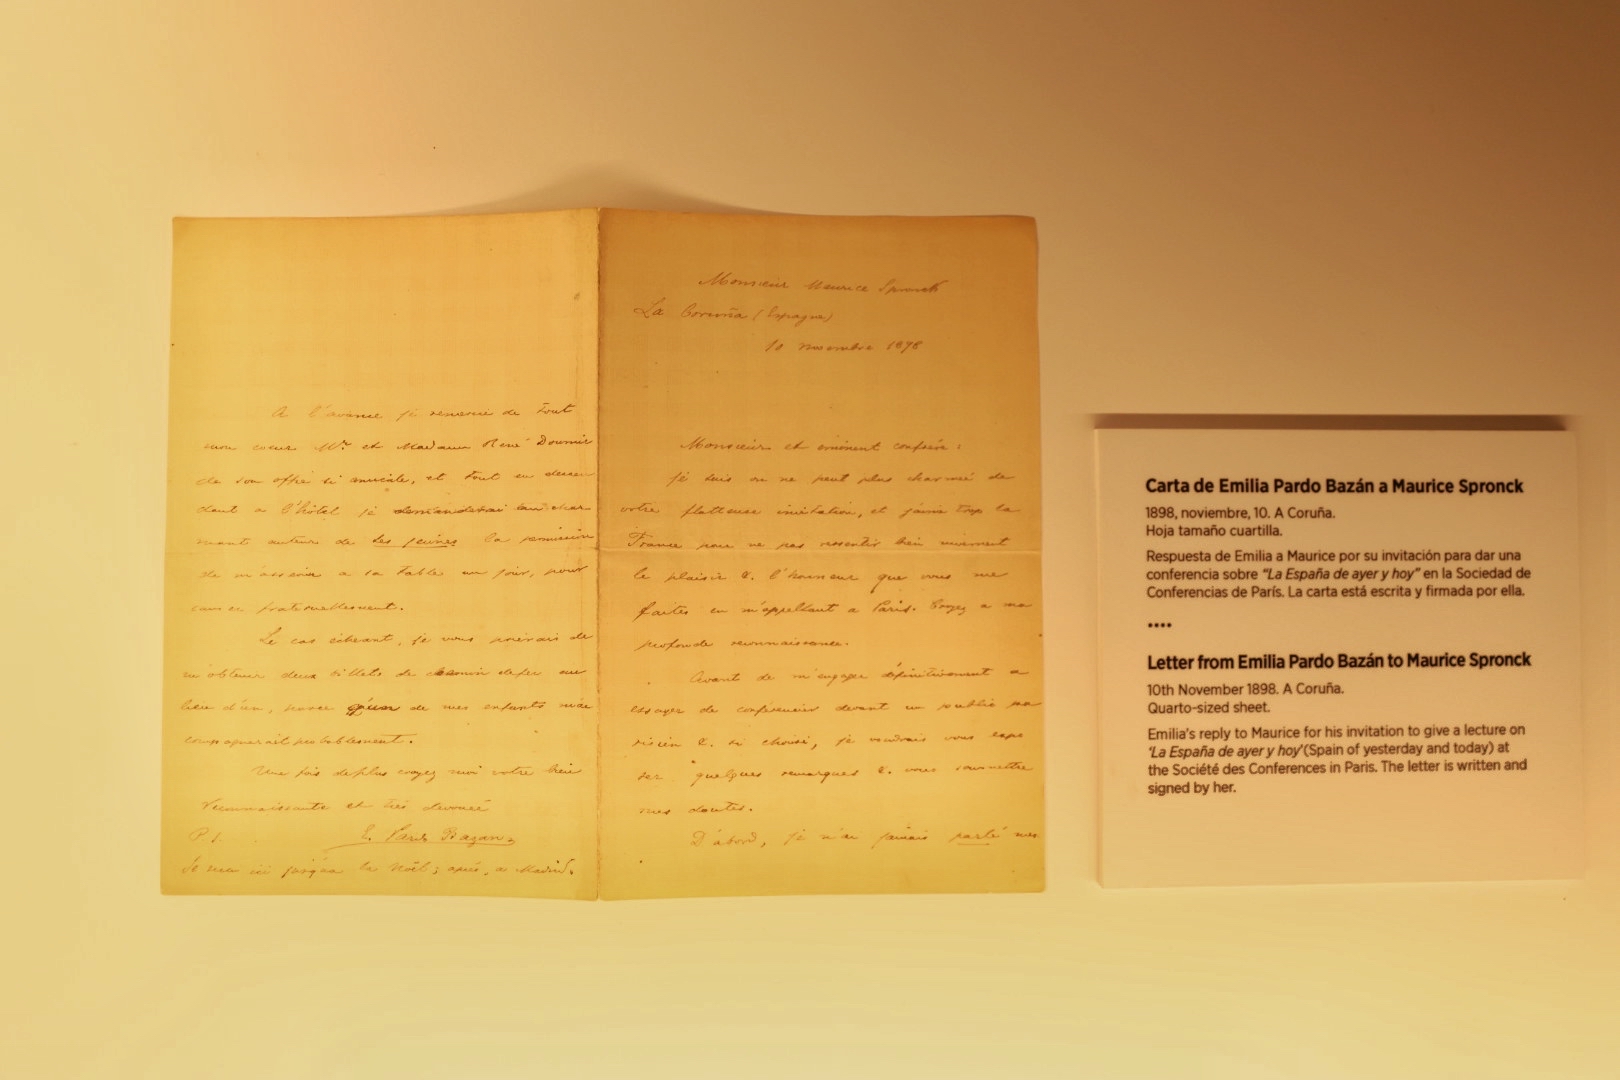 A l'avance je remercie de tout
mon coeur Mr. et Madame René Doumic
de son offre si amicale, et tout en descen
dant a l'hôtel je demanderai au char
mant auteur de Les jeunes la permission
de m'asseoir a sa table un jour, pour
causer fraternellement.
Le cas écheant, je vous prierais de
m'obtenir deux billets de chemin de fer au
lieu d'un, parce qu'un de mes enfants m'ac
compagnerait probablement.
Une fois de plus croyez moi votre bien
reconnaissante et très devouée
E. Pardo Bazan
P. S.
Je suis ici jusqu'a la Noël; après, a Madrid.
Monsieur Maurice Spronck
La Coruña (Espagne)
10 novembre 1898
Monsieur et eminent confrère:
Je suis on ne peut plus charmée de
votre flatteuse invitation, et j'aime trop la
France pour ne pas ressentir bien vivement
le plaisir &. l'honneur que vous me
faites en m'appellant a Paris. Croyez a ma
profonde reconnaissance.
Avant de m'engager définitivement a
essayer de conférencier devant un public pa
risien &. si choisi, je voudrais vous expo
ser quelques remarques &. vous soumettre
mes doutes.
D'abord, je n'ai jamais parlé mes
Carta de Emilia Pardo Bazán a Maurice Spronck
1898, noviembre, 10. A Coruña.
Hoja tamaño cuartilla.
Respuesta de Emilia a Maurice por su invitación para dar una
conferencia sobre "La España de ayer y hoy" en la Sociedad de
Conferencias de París. La carta está escrita y firmada por ella.
••••
Letter from Emilia Pardo Bazán to Maurice Spronck
10th November 1898. A Coruña.
Quarto-sized sheet.
Emilia's reply to Maurice for his invitation to give a lecture on
'La España de ayer y hoy'(Spain of yesterday and today) at
the Société des Conferences in Paris. The letter is written and
signed by her.